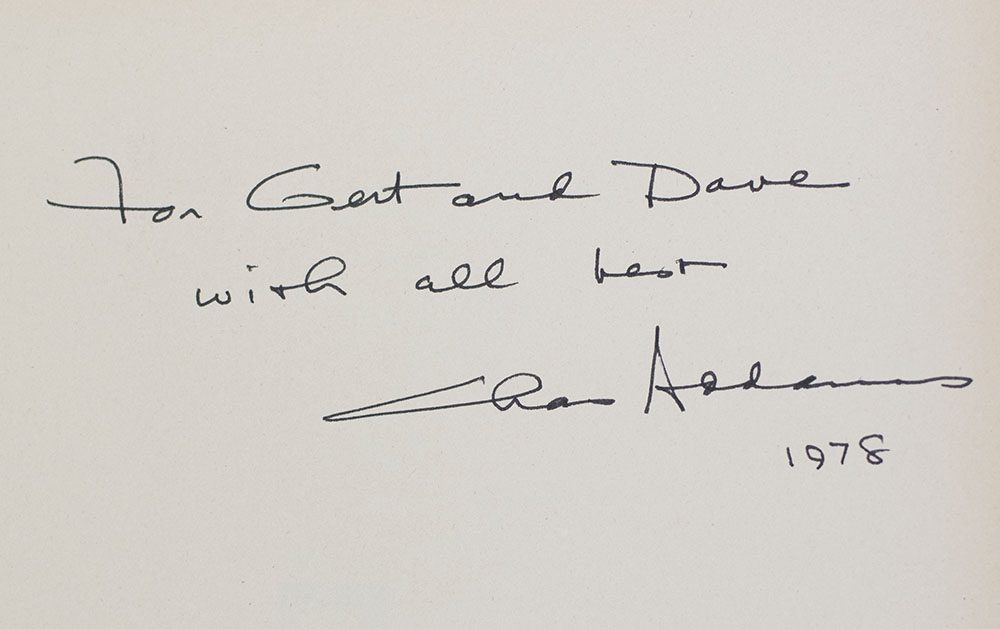 For Gert and Dave
with all best
Chas Addams
1978